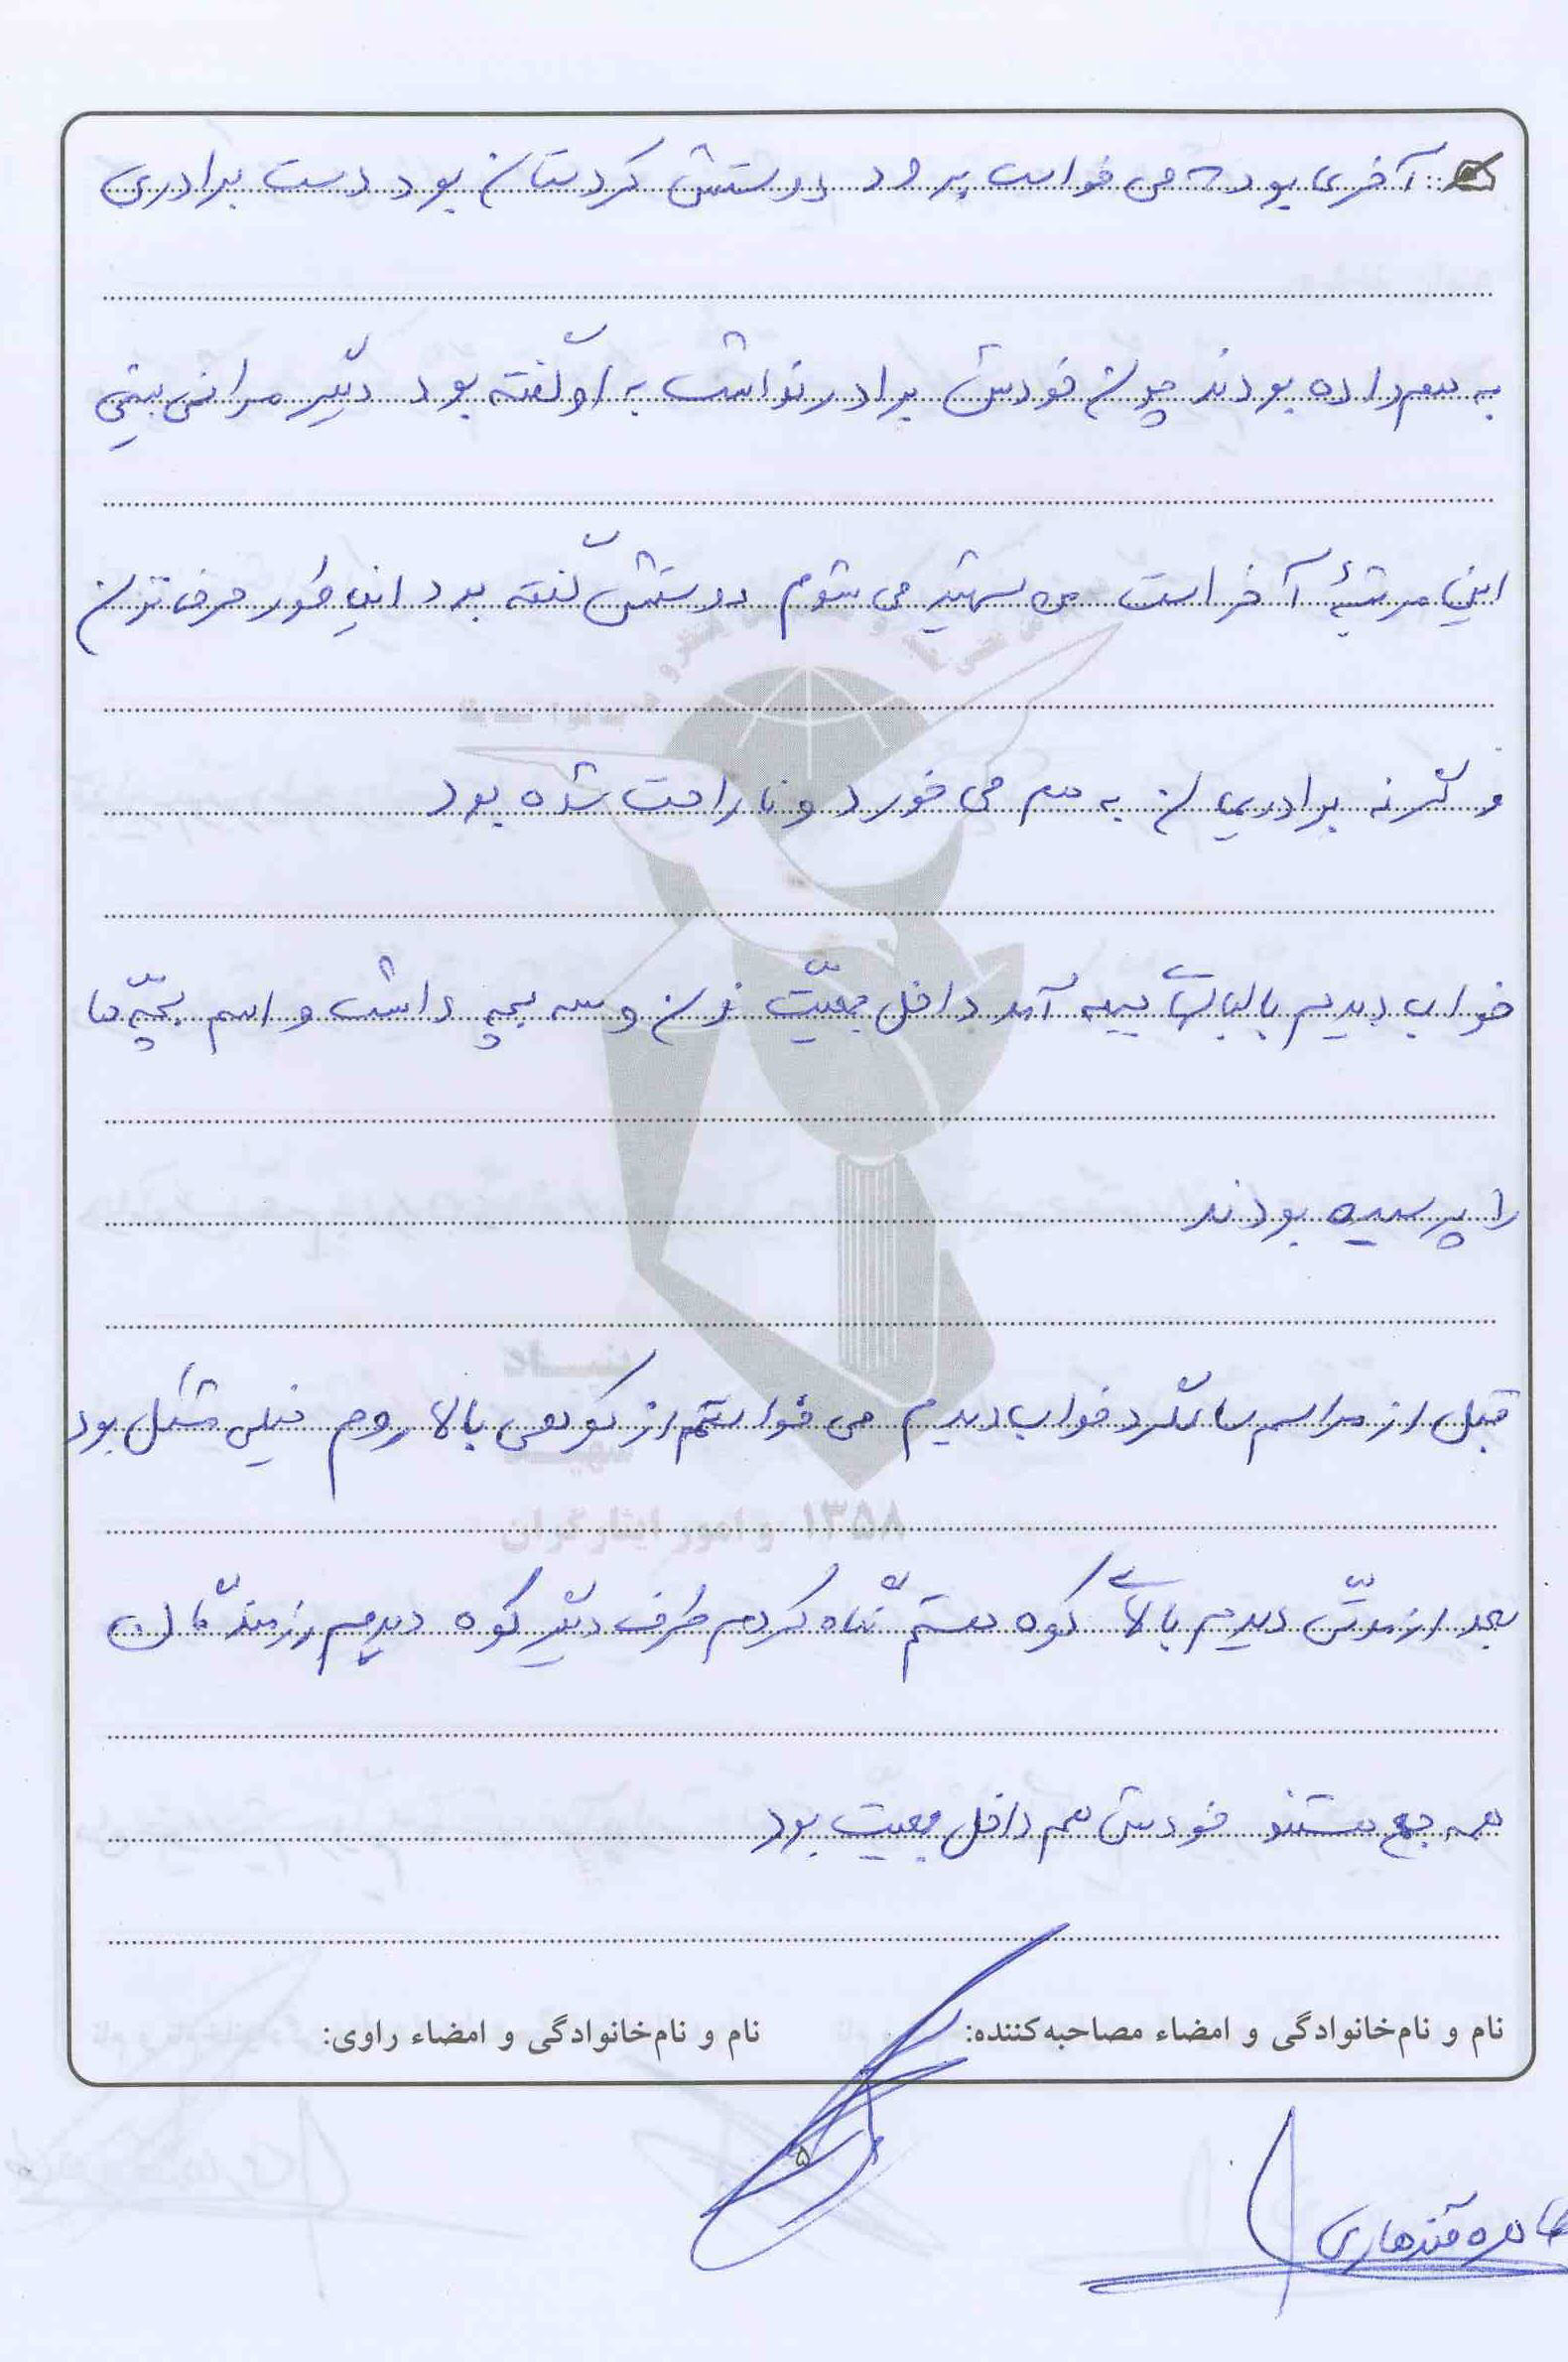 آخری بود که می خواست برود دوستش کردستان بود دست برادری
به هم داده بودند چون خودش برادر نداشت به او گفته بود دیگر مرا نمی بینی
این مرتبهٔ آخر است من شهید می شوم دوستش گفته بود این طور حرف نزن
وگرنه برادریمان به هم می خورد و ناراحت شده بود
خواب دیدم با لباس آمد داخل جمعیّت زن و سه بچه داشت و اسم بچّه ها
را پرسیده بودند
قبل از مراسم سالگرد خواب دیدم می خواستم از کوهی بالا روم خیلی مشکل بود
بعد از مدّتی دیدم بالای کوه هستم نگاه کردم طرف دیگر کوه دیدم رزمندگان
همه جمع هستند خودش هم داخل جمعیت بود
نام و نام‌خانوادگی و امضاء مصاحبه‌کننده: نام و نام‌خانوادگی و امضاء راوی:
۵
طاهره قندهاری
۱۳۵۸ و امور ایثارگران